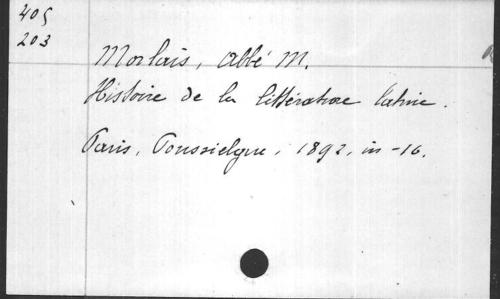 405
203
Morlais, abbé M.
Histoire de la littérature latine.
Paris, Poussielgue, 1892, in-16.